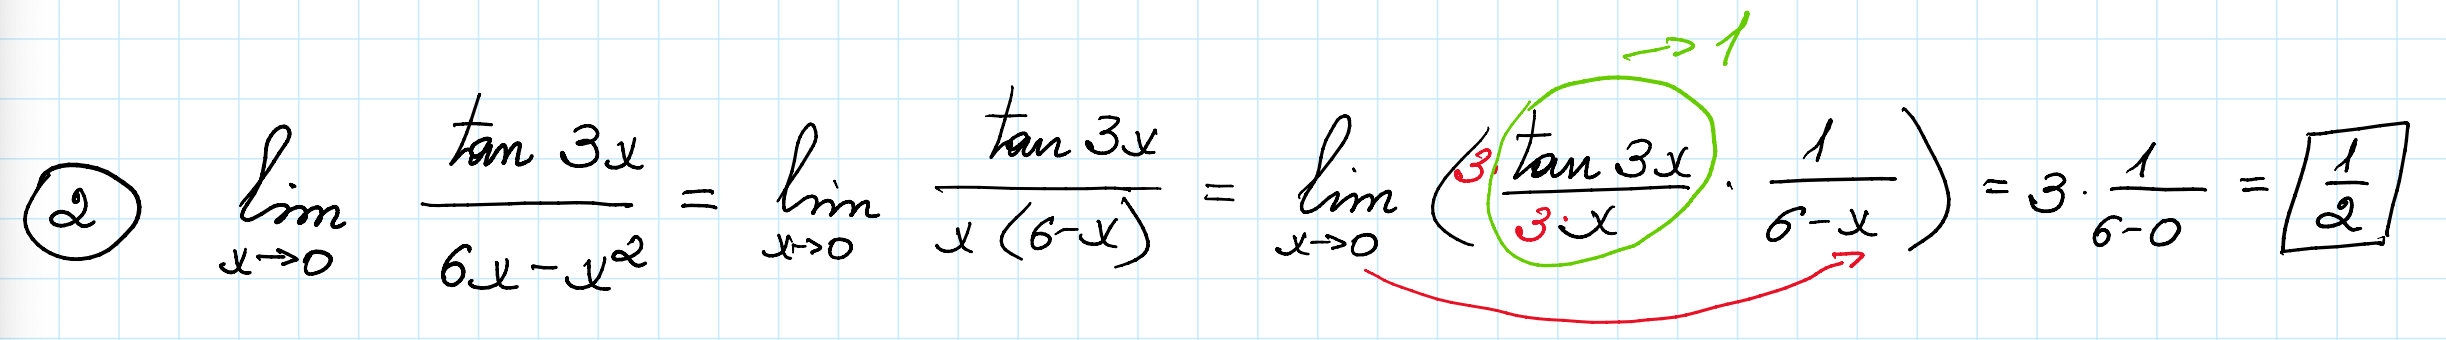 ② lim_{x→0} \frac{tan 3x}{6x-x^2} = lim_{x→0} \frac{tan 3x}{x(6-x)} = lim_{x→0} (3· \frac{tan 3x}{3·x} · \frac{1}{6-x}) = 3 · \frac{1}{6-0} = \boxed{\frac{1}{2}}
→ 1